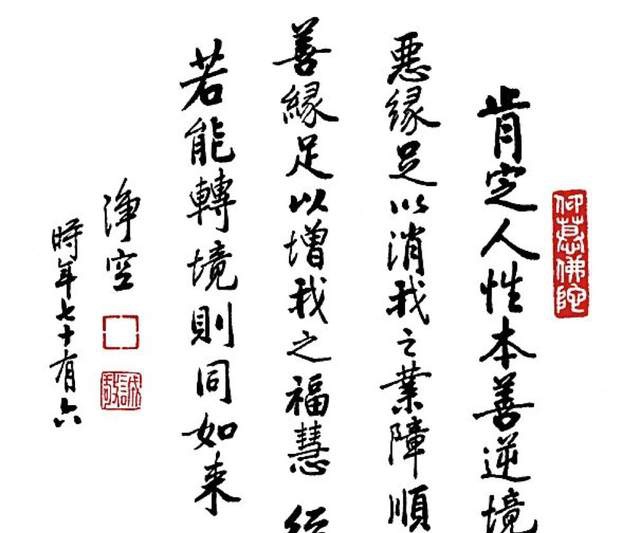 仰慕佛陀
肯定人性本善逆境
惡緣足以消我之業障順
善緣足以增我之福慧
若能轉境則同如来
淨空
時年七十有六
誠敬